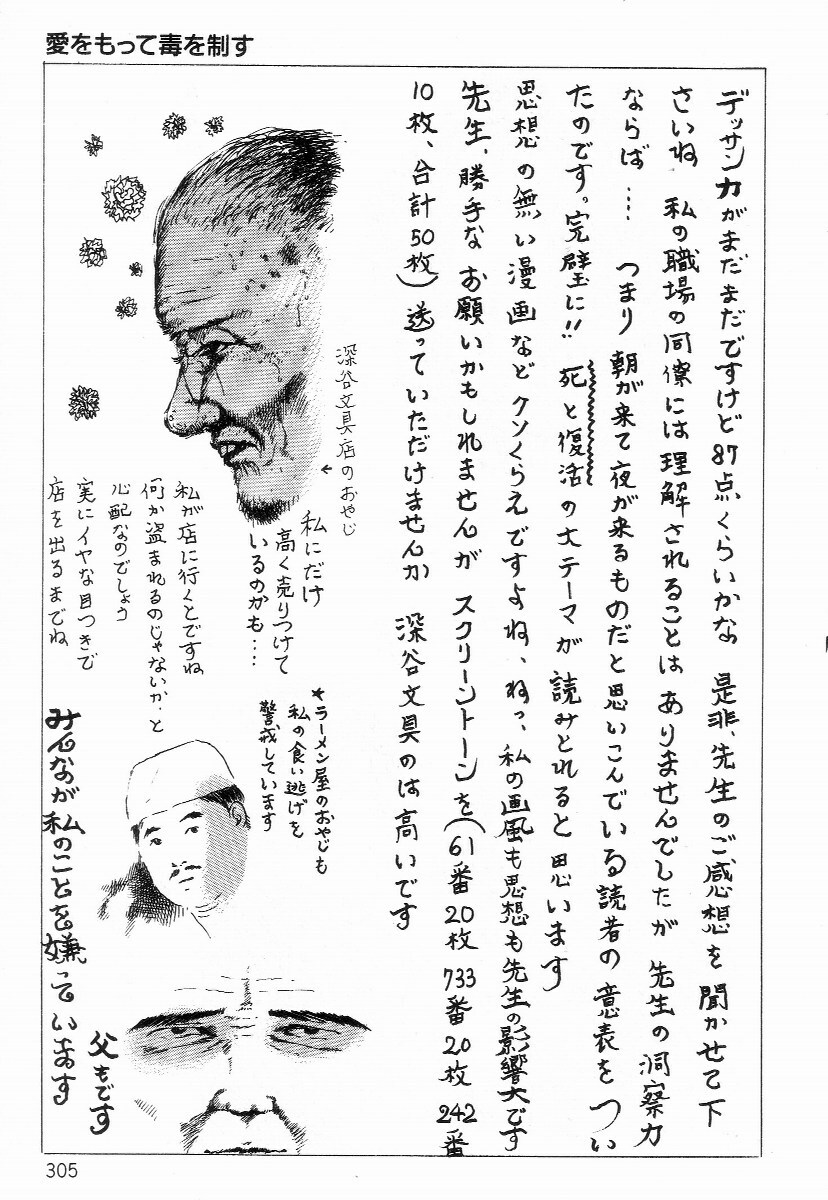 愛をもって毒を制す
デッサン力がまだまだですけど87点くらいかな 是非、先生のご感想を聞かせて下
さいね 私の職場の同僚には理解されることはありませんでしたが 先生の洞察力
ならば…… つまり朝が来て夜が来るものだと思いこんでいる読者の意表をつい
たのです。完璧に!! 死と復活の大テーマが読みとれると思います
思想の無い漫画などクソくらえですよね、ねっ、私の画風も思想も先生の影響大です
先生、勝手なお願いかもしれませんがスクリーントーンを(61番20枚 733番20枚 242番
10枚、合計50枚)送っていただけませんか 深谷文具のは高いです
深谷文具店のおやじ
←
私にだけ
高く売りつけて
いるのかも…
私が店に行くとですね
何か盗まれるのじゃないか、と
心配なのでしょう
実にイヤな目つきで
店を出るまでね
*ラーメン屋のおやじも
私の食い逃げを
警戒しています
みんなが私のことを嫌っています
父もです
305